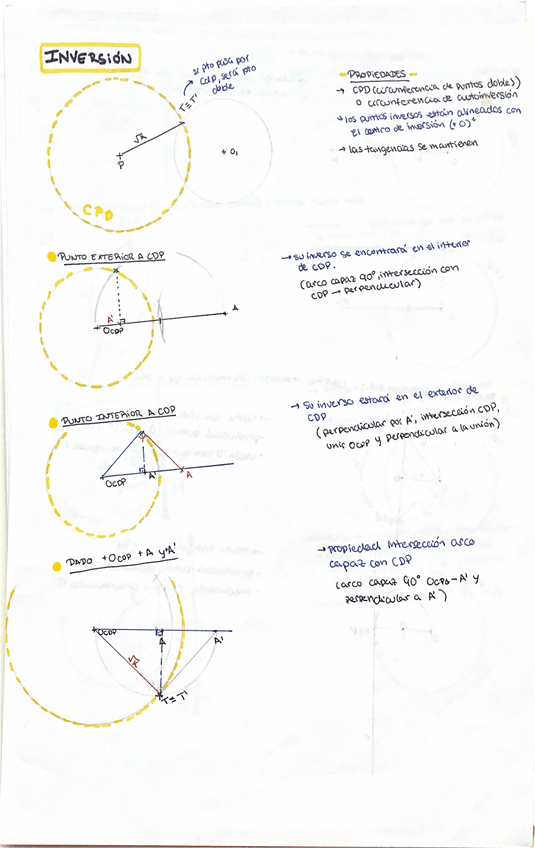 INVERSIÓN
si pto pasa por
cdp, será pto
doble
T≡T'
√K
P
+ O₁
CPD
PROPIEDADES
→ CPD (circunferencia de puntos dobles)
o circunferencia de autoinversión
→ los puntos inversos están alineados con
el centro de inversión (+O)
→ las tangencias se mantienen
PUNTO EXTERIOR A CDP
A'
OCDP
A
→ su inverso se encontrará en el interior
de CDP.
(arco capaz 90°, intersección con
CDP → perpendicular)
PUNTO INTERIOR A CDP
OCDP
A'
A
→ Su inverso estará en el exterior de
CDP
(perpendicular por A', intersección CDP,
unir OCDP y perpendicular a la unión)
DADO +OCDP +A y +A'
OCDP
A
A'
√K
T≡T'
→ propiedad intersección arco
capaz con CDP
(arco capaz 90° OCDP-A' y
perpendicular a A')